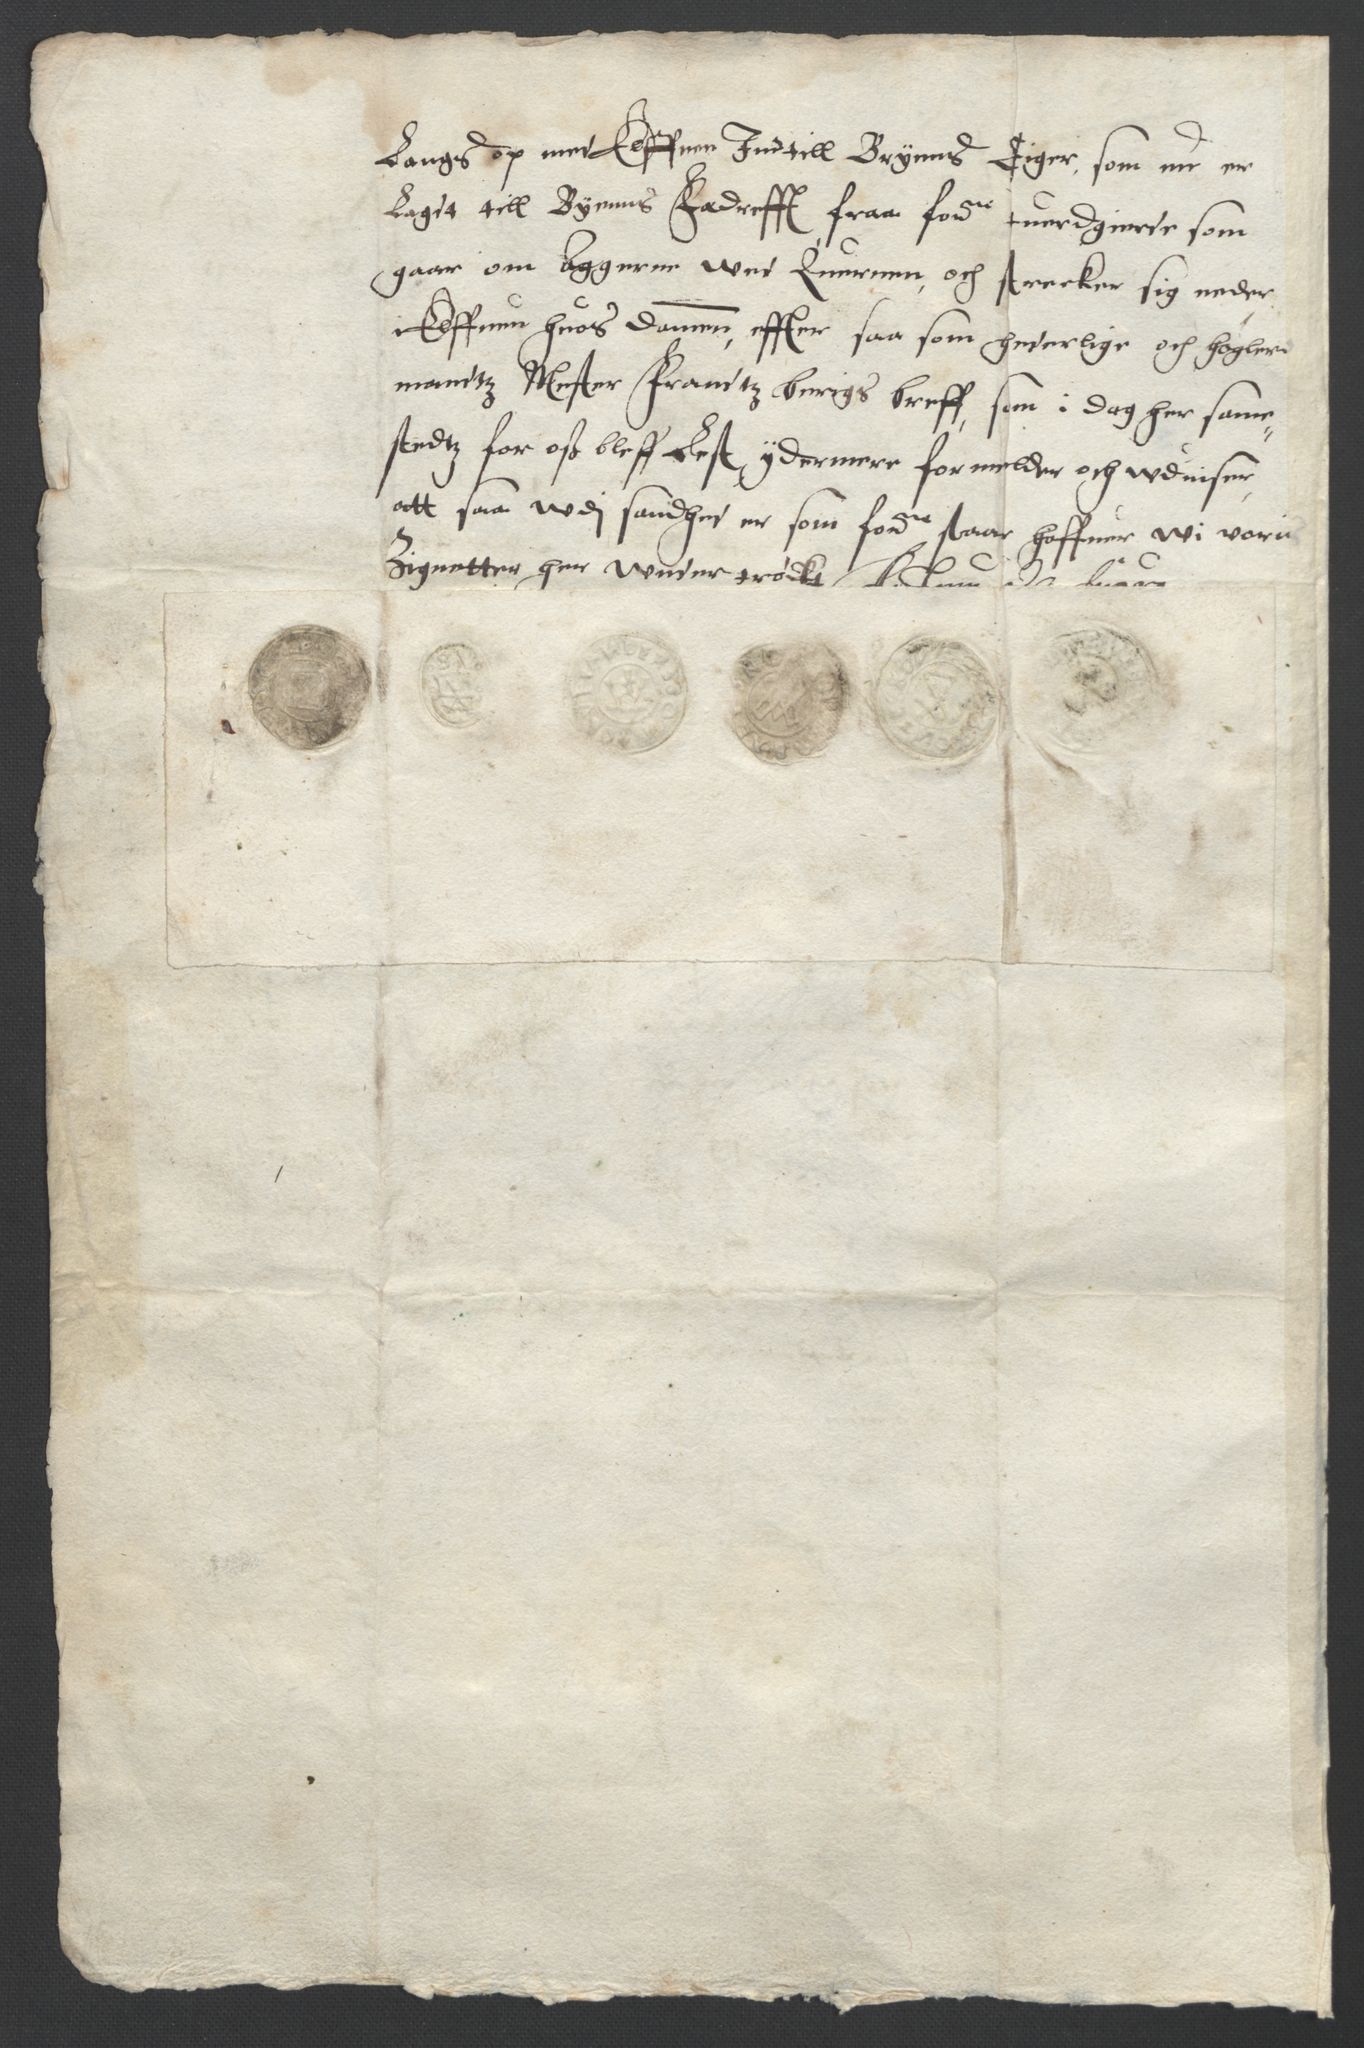 Langs op med Elffuen Indtill Byenns Eiger, som nu er
Lagit till Byenns Fadrefft fraa ford.ne tuerdgierde som
gaar om Aggerne wed Quernen, och strecker sig neder
i Elffuen huos Dammen, effter saa som hederlige och høglerd
manndtz Mester Franndtz Berigs breff, som i dag her same„
stedtz for oß bleff Lest ydermere formelder och wduiser,
att saa wdj sandhed er som ford.ne staar haffuer wi voris
Zignetter her wnder trøckt